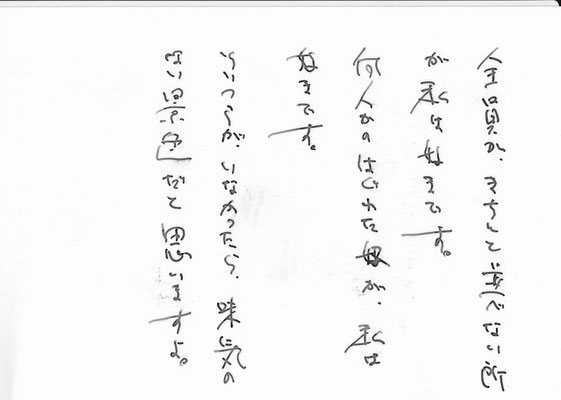 全員が、きちんと並べない所
が私は好きです。
何人かのはぐれた奴が、私は
好きです。
そいつらが、いなかったら、味気の
ない景色だと思いますよ。